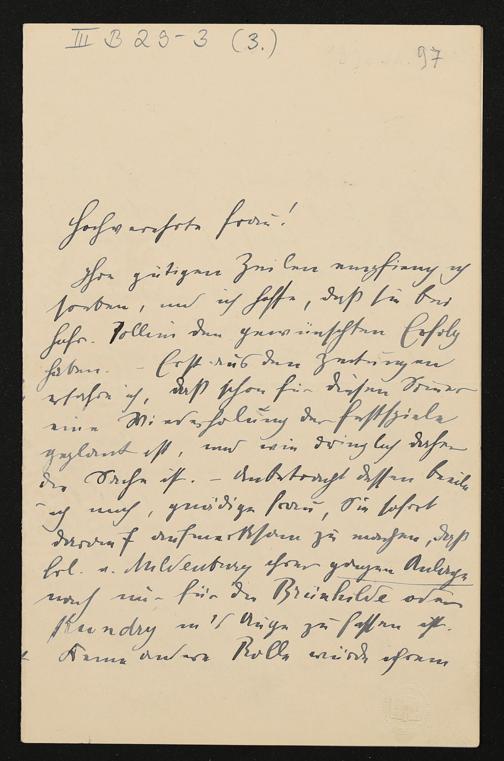 III B 29-3 (3.)
97
Hochverehrte Frau!
Ihre gütigen Zeilen empfieng ich
soeben, und ich hoffe, daß sie bei
Hofr. Pollini den gewünschten Erfolg
haben. – Erst aus den Zeitungen
erfahre ich, daß schon für diesen Somer
eine Wiederholung der Festspiele
geplant ist, und wie dringlich daher
die Sache ist. – Anbetracht dessen beeile
ich mich, gnädige Frau, Sie sofort
darauf aufmerksam zu machen, daß
Frl. v. Mildenburg ihrer ganzen Anlage
nach nur für die Brünhilde oder
Kundry in's Auge zu fassen ist.
Keine andere Rolle würde ihrem